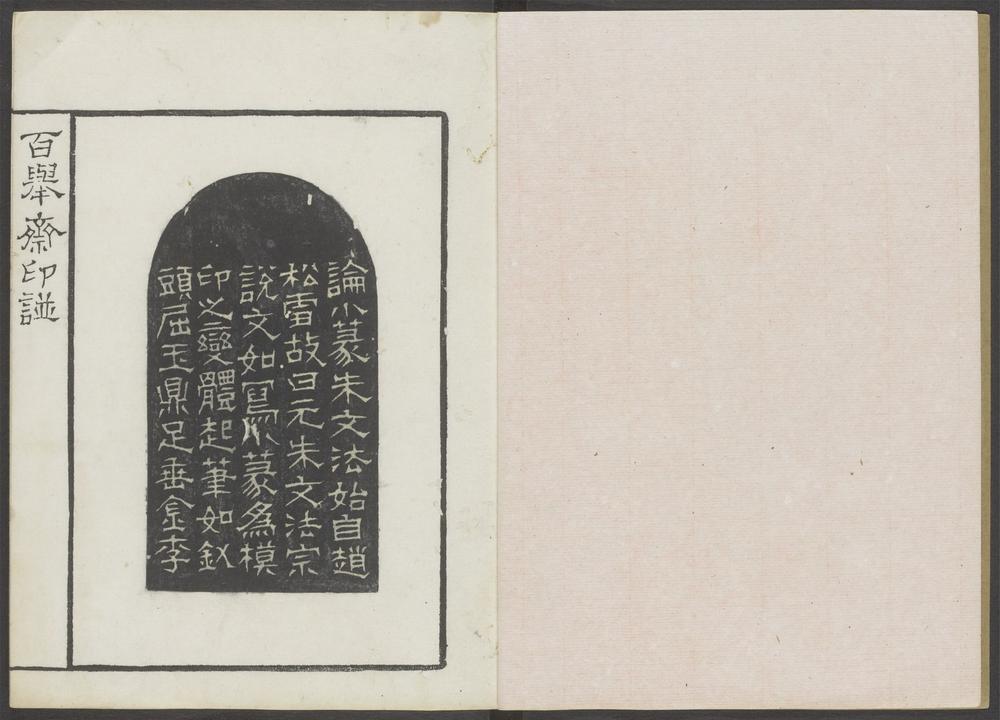 論小篆朱文法始自趙
松雪故曰元朱文法宗
說文如寫小篆為模
印之變體起筆如釵
頭屈玉鼎足垂金李
百舉齋印譜